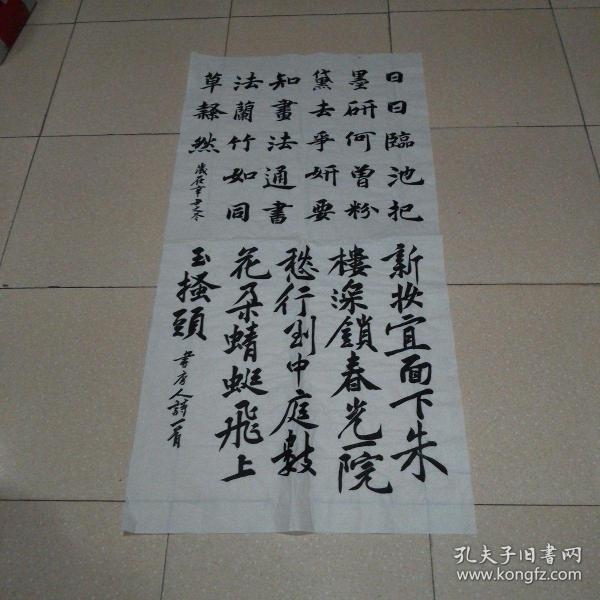 日日臨池把
墨研何曾粉
黛去爭妍要
知畫法通書
法蘭竹如同
草隸然
歲在辛丑冬
新妆宜面下朱
樓深鎖春光一院
愁行到中庭數
花朵蜻蜓飛上
玉搔頭
書唐人詩一首
孔夫子旧书网
www.kongfz.com